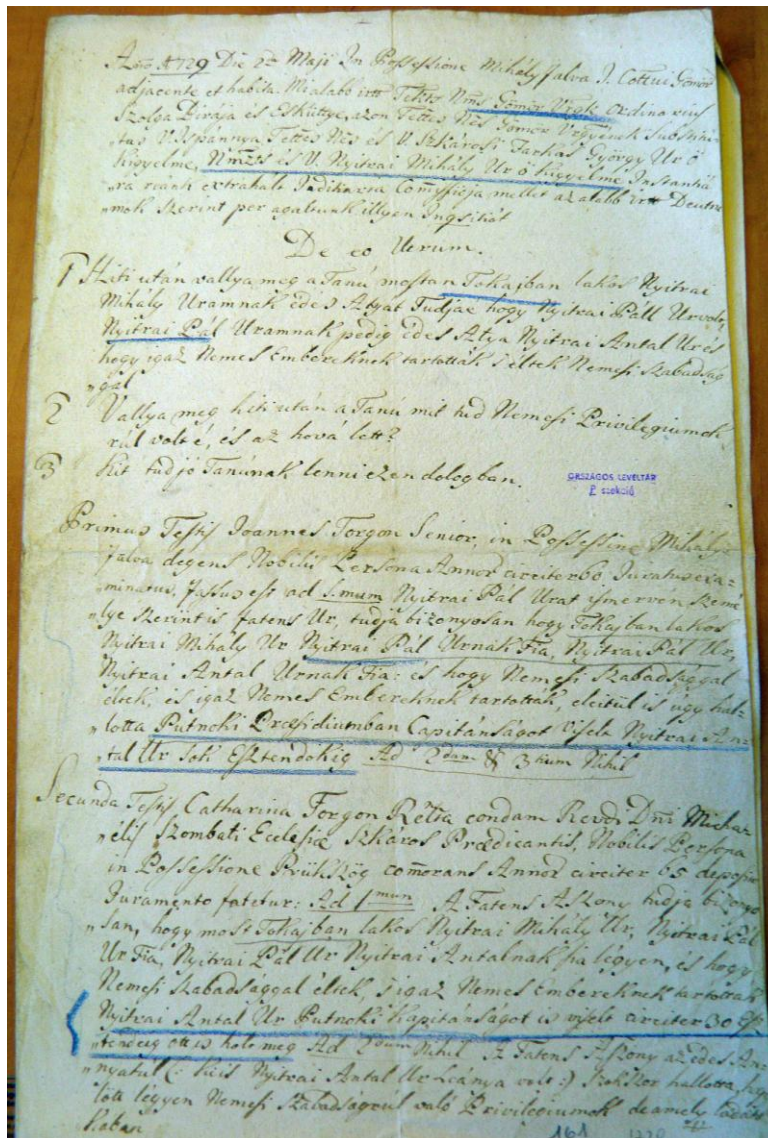 Anno 1729 Die 2da Maji In Possessione Mihályfalva I. Cottui Gömör
adjacente et habita. Mi alább irtt Tekts Nms Gömör Vrgye Ordinarius
Szolga Birája és Esküttye, azon Tettes Nes Gömör Vrgyének Substitu-
tus V. Ispánnya Tettes Nes és V. Szkárosi Farkas György Ur ő
kigyelme, Nmzss és V. Nyitrai Mihály Ur ő kigyelme Instantiá
ra reank extrahált Judiliaria mellet az alább irtt Deutru
"mok szerint per agaltunk illyen Inqsitiót
De eo Utrum.
1 Hiti után vallya meg a Tanú mostan Tokajban lakos Nyitrai
Mihály Uramnak édes Atyát Tudjae hogy Nyitrai Páll Ur volt,
Nyitrai Pál Uramnak pedig édes Atya Nyitrai Antal Ur és
hogy igaz Nemes Embereknek tartották s éltek Nemesi szabadság
"gál
2 Vallya meg hiti után a Tanú mit tud Nemesi Privilegiumok
rúl volt é, és az hová lett?
3 Kit tud jó Tanúnak lenni ezen dologban.
ORSZÁGOS LEVÉLTÁR
P szekció
Primus Testis Joannes Forgon Senior, in Possessine Mihály-
falva degens Nobilis Persona Annor circiter 60, Juratus exa-
minatus, fassus est ad 1.mum Nyitrai Pál Urat ismervén szemé
lye szerint is fatens Ur, tudja bizonyosan hogy Tokajban lakos
Nyitrai Mihály Ur Nyitrai Pál Urnak Fia, Nyitrai Pál Ur,
Nyitrai Antal Urnak Fia: és hogy Nemesi szabadsággal
éltek, és igaz Nemes Embereknek tartották, eleitül is ugy hal-
"lotta Putnoki Præsidiumban Capitánságot visele Nyitrai An-
"tal Ur sok Esztendőkig Ad 2dum & 3tium Nihil
Secunda Testis Catharina Forgon Relta condam Revdi Dni Micha
"élis Szombati Ecclesiæ Szkáros Prædicantis, Nobilis Persona
in Possessione Prükszög comorans Annor circiter 65 deposito
Juramento fatetur: Ad 1mum A Fatens Aszony tudja bizonyo
"san, hogy most Tokajban lakos Nyitrai Mihály Ur, Nyitrai Pál
Ur Fia, Nyitrai Pál Ur Nyitrai Antalnak fia légyen, és hogy
Nemesi szabadsággal éltek, s igaz Nemes Embereknek tartották
Nyitrai Antal Ur Putnoki Kapitánságot is viselt circiter 30 Esz
"tendeig ott is holt meg Ad 2dum Nihil Az Fatens Aszony az édes An-
"nyatul (: kiis Nyitrai Antal Ur Leánya volt :) sokszor hallotta, hogy
"lött légyen Nemesi szabadságrúl való Privilegiumok de amely ládáts
kában
161 1220